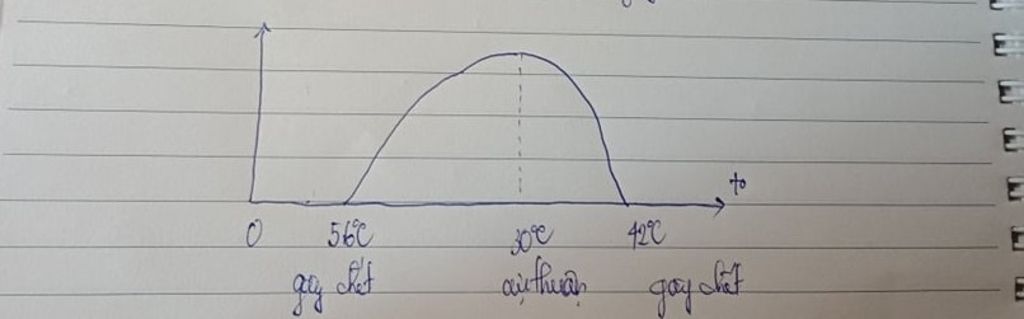 t°
0 56°C 30°C 42°C
gây chết cực thuận gây chết